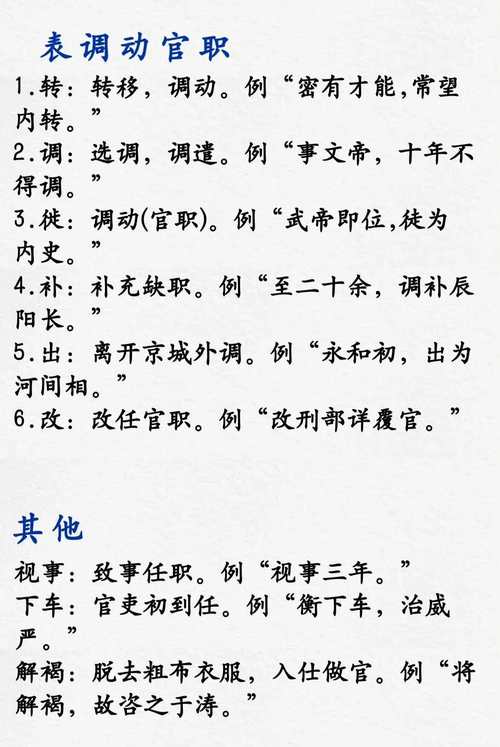 表调动官职
1.转：转移，调动。例“密有才能,常望
内转。”
2.调：选调，调遣。例“事文帝，十年不
得调。”
3.徙：调动(官职)。例“武帝即位,徒为
内史。”
4.补：补充缺职。例“至二十余，调补辰
阳长。”
5.出：离开京城外调。例“永和初，出为
河间相。”
6.改：改任官职。例“改刑部详覆官。”
其他
视事：致事任职。例“视事三年。”
下车：官吏初到任。例“衡下车，治威
严。”
解褐：脱去粗布衣服，入仕做官。例“将
解褐，故咨之于涛。”